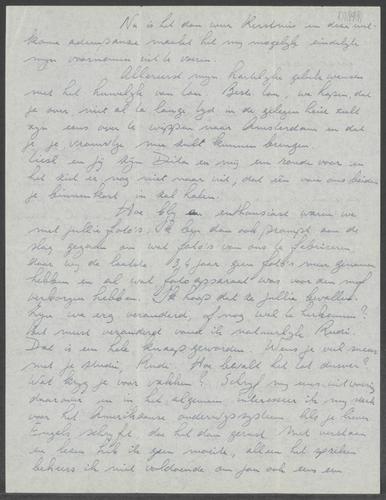 Nu is het dan weer Kerstmis en deze wel-
kome adempauze maakt het mij mogelijk eindelijk
mijn voornemen uit te voeren.
Allereerst mijn hartelijke gelukwensen
met het huwelijk van Lou. Beste Lou, we hopen dat
je over niet al te lange tijd in de gelegenheid zult
zijn eens over te wippen naar Amsterdam en dat
je je vrouwtje mee zult kunnen brengen.
Liesl en jij zijn Dita en mij een ronde voor en
het ziet er nog niet naar uit, dat één van ons beiden
je binnenkort in zal halen.
Hoe blij en enthousiast waren we
met jullie foto's. Ik ben dan ook prompt aan de
slag gegaan om wat foto's van ons te fabriceren
daar wij de laatste 3, 4 jaar geen foto's meer genomen
hebben en al wat fotoapparaat was voor den mof
verborgen hebben. Ik hoop dat ze jullie bevallen.
Zijn we erg veranderd, of nog wel te herkennen?
Het meest veranderd vond ik natuurlijk Rudi.
Dat is een hele knaap geworden. Wens je veel succes
met je studie, Rudi. Hoe bevalt het tot dusver?
Wat krijg je voor vakken? Schrijf mij eens uitvoerig
daarover en in het algemeen interesseer ik mij sterk
voor het Amerikaanse onderwijssysteem. Als je liever
Engels schrijft, doe het dan gerust. Met verstaan
en lezen heb ik geen moeite, alleen het spreken
beheers ik niet voldoende om jou ook eens een